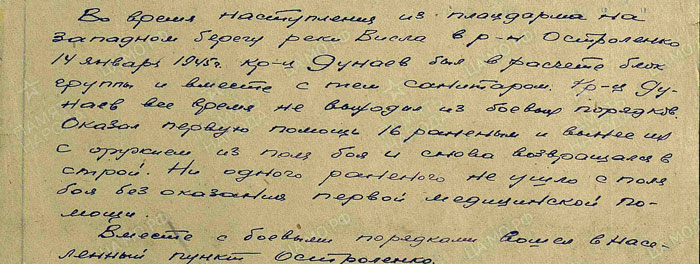 Во время наступления из плацдарма на
западном берегу реки Висла в р-н Остроленко
14 января 1945г. кр-ц Дунаев был в расчете блок
группы и вместе с тем санитаром. Кр-ц Ду-
наев все время не выходил из боевых порядков.
Оказал первую помощь 16 раненым и вынес их
с оружием из поля боя и снова возвращался в
строй. Ни одного раненого не ушло с поля
боя без оказания первой медицинской по-
мощи.
Вместе с боевыми порядками вошел в насе-
ленный пункт Остроленко.